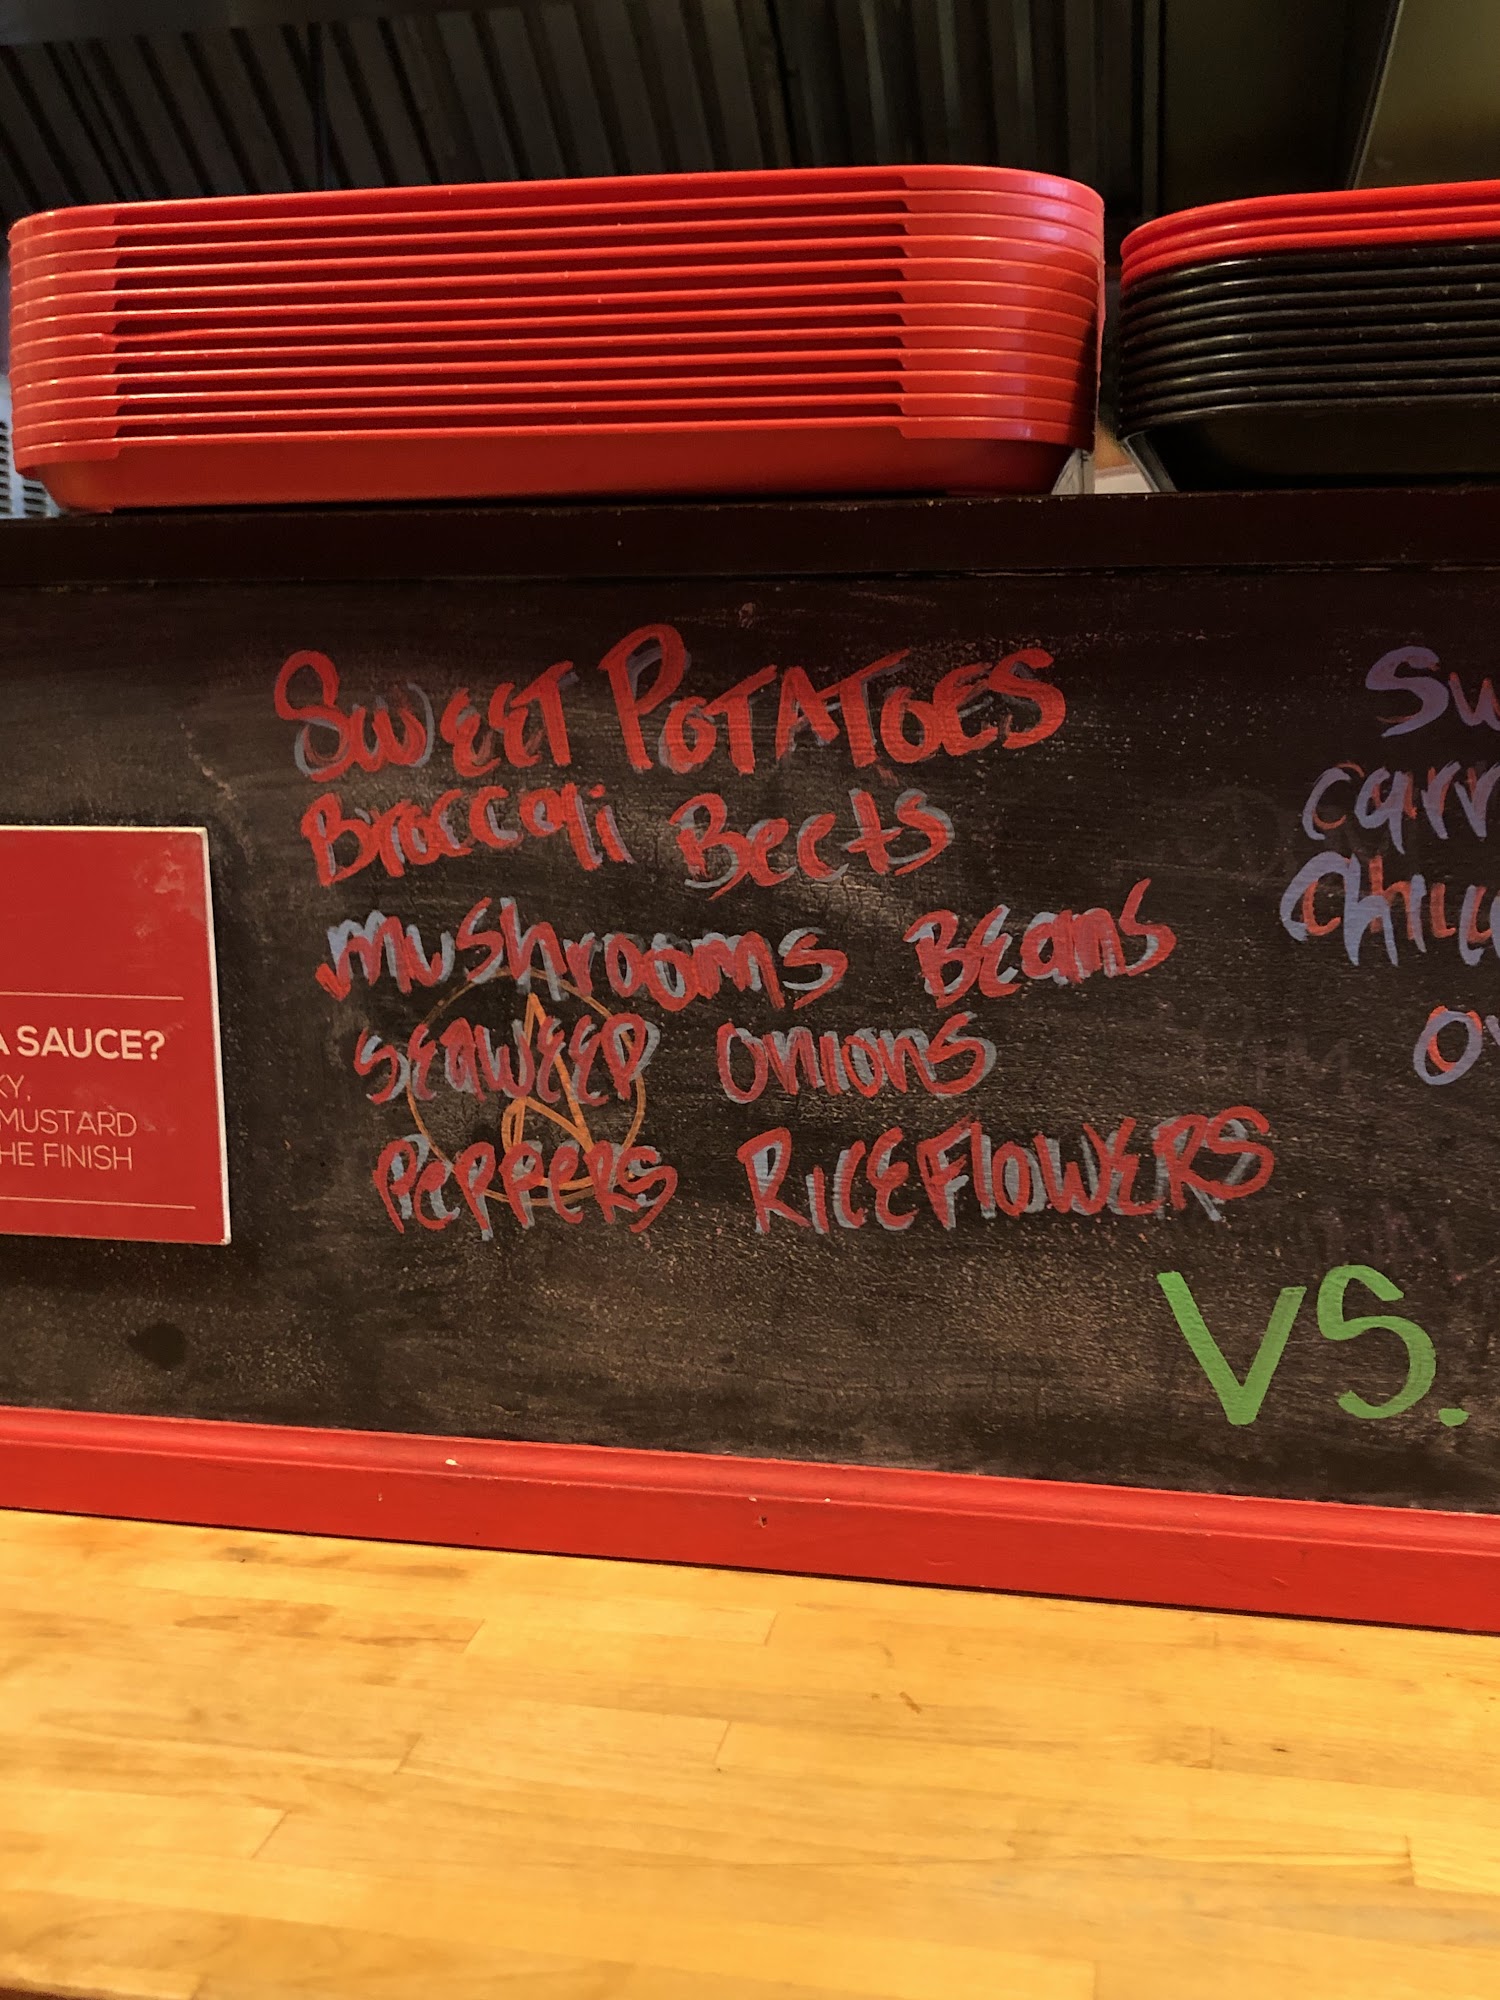 SWEET POTATOES
Broccoli Beets
mushrooms BEans
SEaWEED Onions
PEPPERS RICEFlOWERS
A SAUCE?
KY,
MUSTARD
HE FINISH
VS.